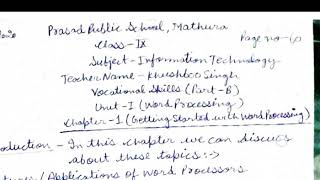 Prasad Public School, Mathura
Page no-(1)
Class-IX
Subject-Information Technology
Teacher Name-Khushboo Singh
Vocational Skills (Part-B)
Unit-I (Word Processing)
Chapter-1 (Getting Started with Word Processing)
oduction - In this chapter we can discuss
about these topics :->
/ Applications of Word Processors.